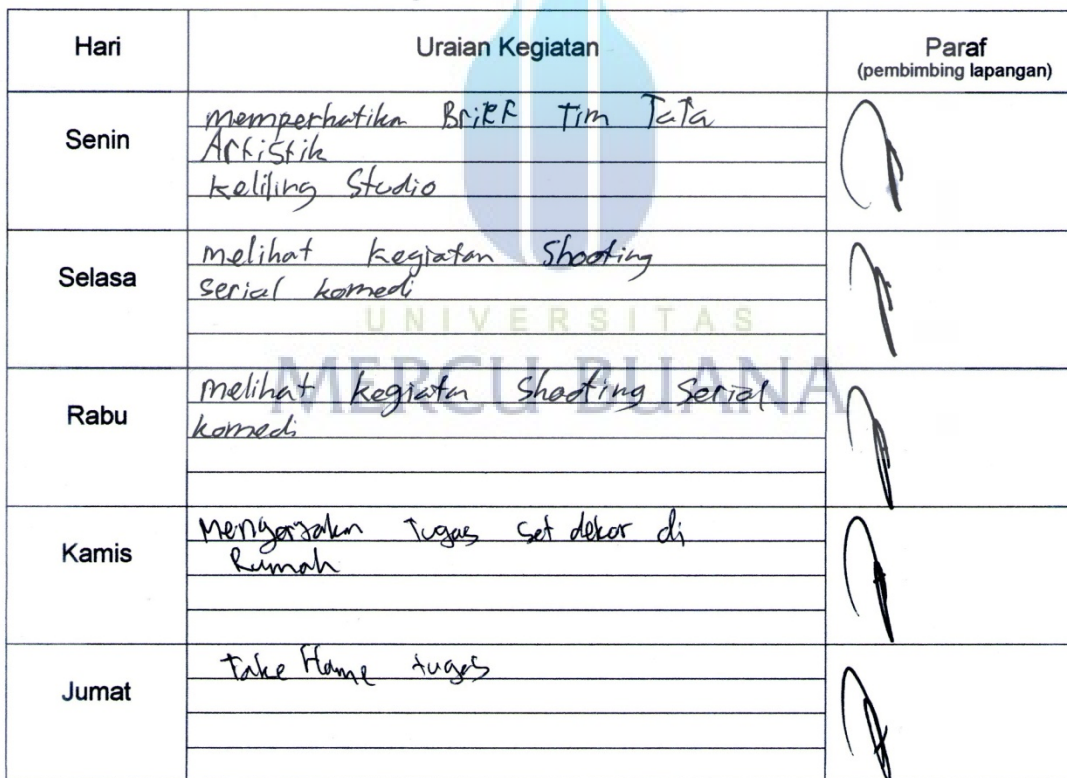 Hari Uraian Kegiatan Paraf
(pembimbing lapangan)
Senin
memperhatikan Brief Tim Tata
Artistik
Keliling Studio
Selasa
melihat kegiatan Shooting
serial komedi
UNIVERSITAS
MERCU BUANA
Rabu
melihat kegiatan Shooting Serial
komedi
Kamis
Mengerjakan Tugas Set dekor di
Rumah
Jumat
Take Home tugas